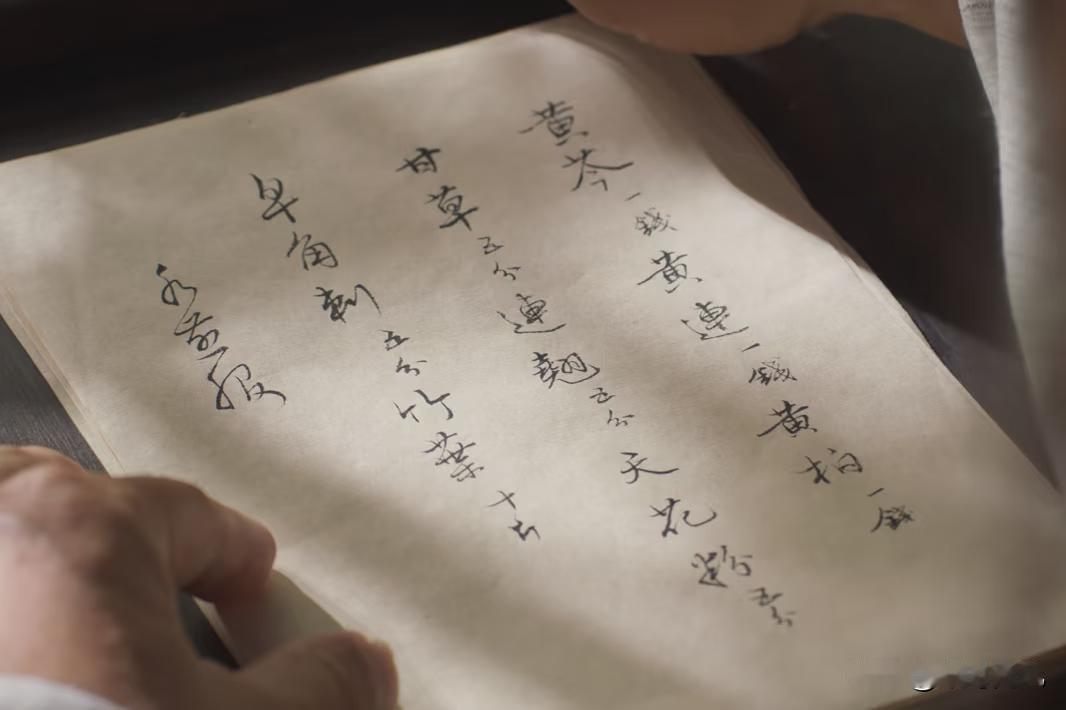 黄芩一錢黄連一錢黄柏一錢
甘草五分連翹五分天花粉五分
早角刺五分竹葉十
水煎服